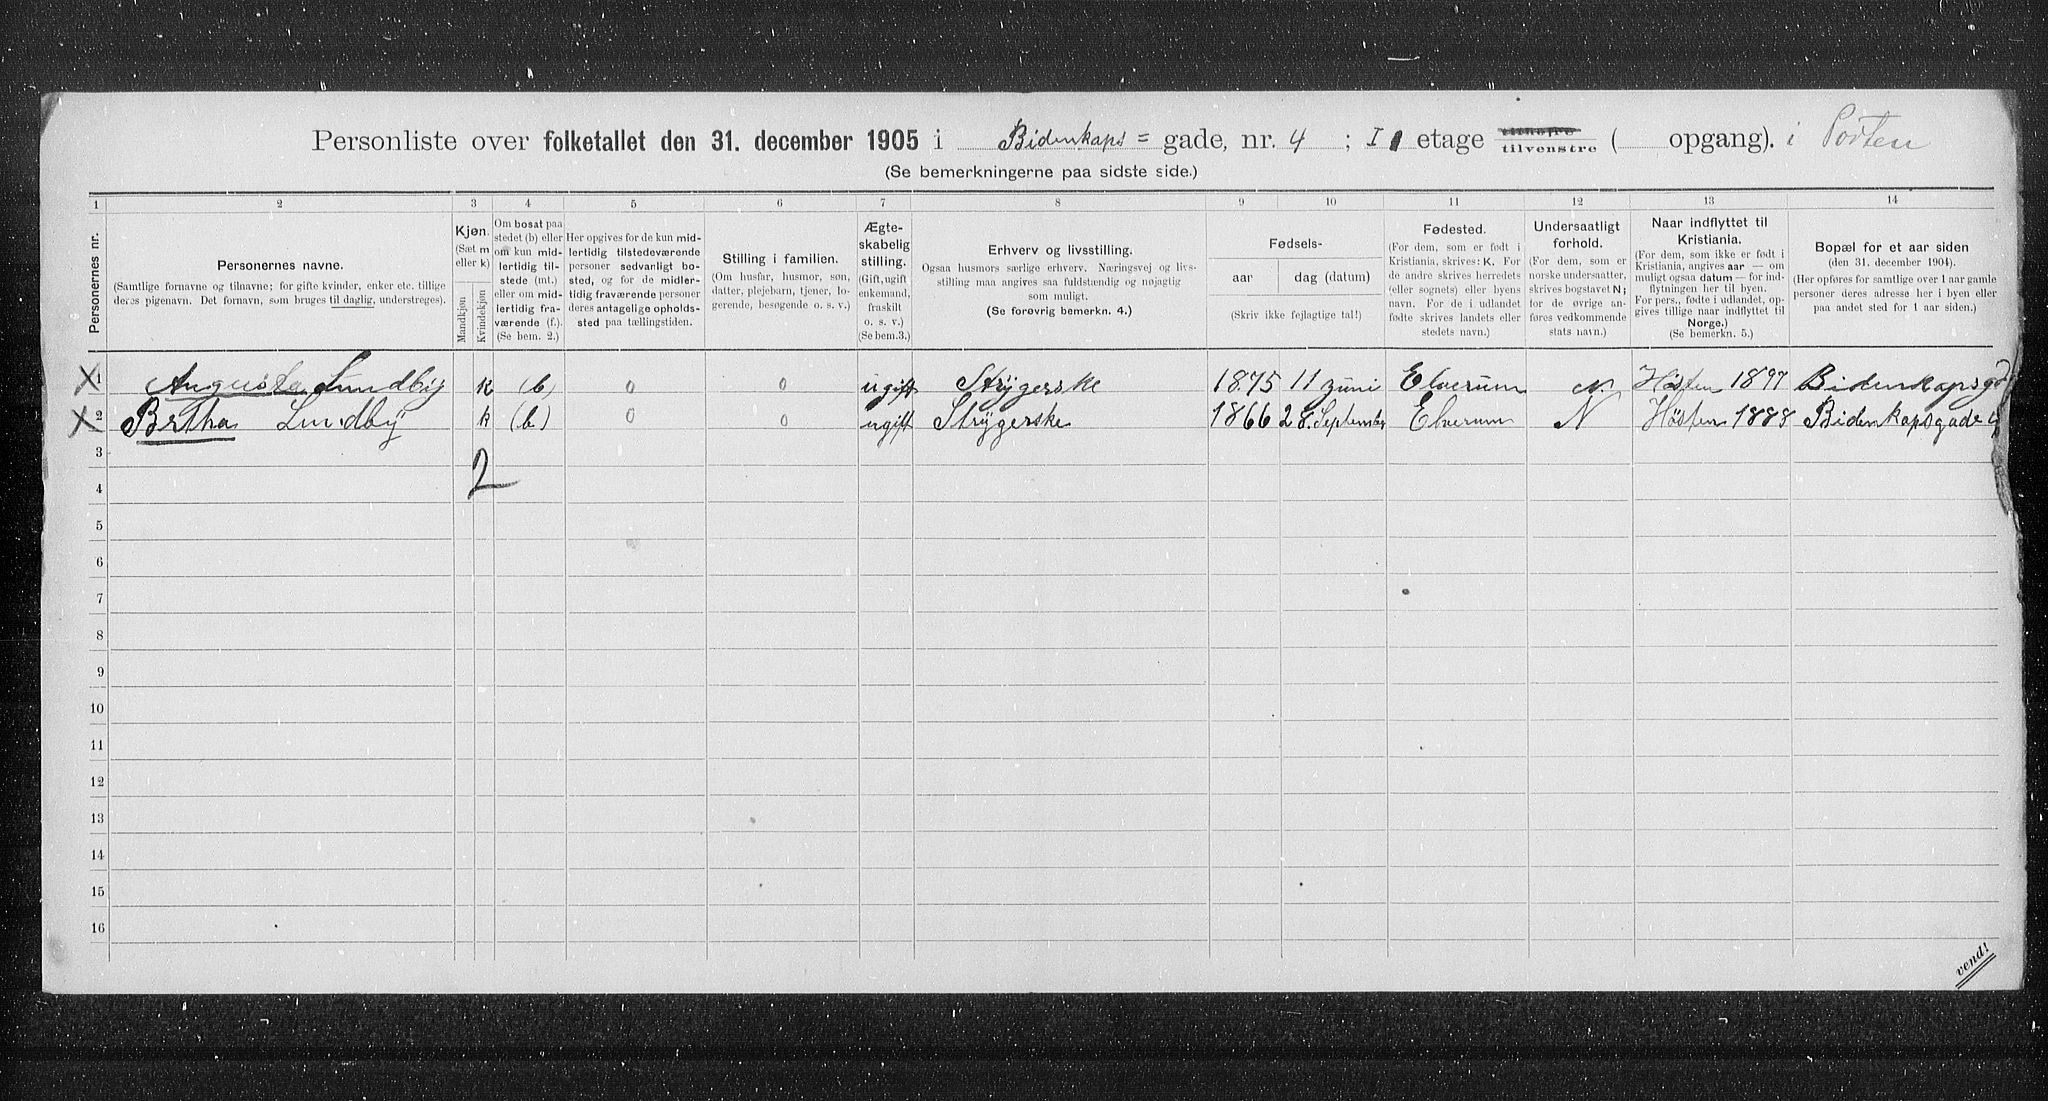 Personliste over folketallet den 31. december 1905 i Bidenkaps=gade, nr. 4; I etage tilhøjre tilvenstre ( opgang). i Porten
(Se bemerkningerne paa sidste side.)
1 2 3 4 5 6 7 8 9 10 11 12 13 14
Personernes nr.
Personernes navne.
(Samtlige fornavne og tilnavne; for gifte kvinder, enker etc. tillige
deres pigenavn. Det fornavn, som bruges til daglig, understreges).
Kjøn.
(Sæt m
eller k)
Mandkjøn
Kvindekjøn
Om bosat paa
stedet (b) eller
om kun mid-
lertidig til-
stede (mt.)
eller om mid-
lertidig fra-
værende (f.).
(Se bem. 2.)
Her opgives for de kun mid-
lertidig tilstedeværende
personer sedvanligt bo-
sted, og for de midler-
tidig fraværende personer
deres antagelige opholds-
sted paa tællingstiden.
Stilling i familien.
(Om husfar, husmor, søn,
datter, plejebarn, tjener, lo-
gerende, besøgende o. s. v.)
Ægte-
skabelig
stilling.
(Gift, ugift
enkemand,
fraskilt
o. s. v.)
(Se bem.3.)
Erhverv og livsstilling.
Ogsaa husmors særlige erhverv. Næringsvej og livs-
stilling maa angives saa fuldstændig og nøjagtig
som muligt.
(Se forøvrig bemerkn. 4.)
Fødsels-
aar dag (datum)
(Skriv ikke fejlagtige tal!)
Fødested.
(For dem, som er født i
Kristiania, skrives: K. For
de andre skrives herredets
(eller sognets) eller byens
navn. For de i udlandet
fødte skrives landets eller
stedets navn.)
Undersaatligt
forhold.
(For dem, som er
norske undersaatter,
skrives bogstavet N;
for de øvrige an-
føres vedkommende
stats navn.)
Naar indflyttet til
Kristiania.
(For dem, som ikke er født i
Kristiania, angives aar — om
muligt ogsaa datum — for ind-
flytningen her til byen.
For pers., fødte i udlandet, op-
gives tillige naar indflyttet til
Norge.)
(Se bemerkn. 5.)
Bopæl for et aar siden
(den 31. december 1904).
(Her opføres for samtlige over 1 aar gamle
personer deres adresse her i byen eller
paa andet sted for 1 aar siden.)
X 1 Augusta Lundby k (b) 0 0 ugift Strygerske 1875 11 juni Elverum N. Høsten 1897 Bidenkapsgd
X 2 Bertha Lundby k (b) 0 0 ugift Strygerske 1866 28. September Elverum N Høsten 1888 Bidenkapsgade 4
3
2
4
5
6
7
8
9
10
11
12
13
14
15
16
vend!